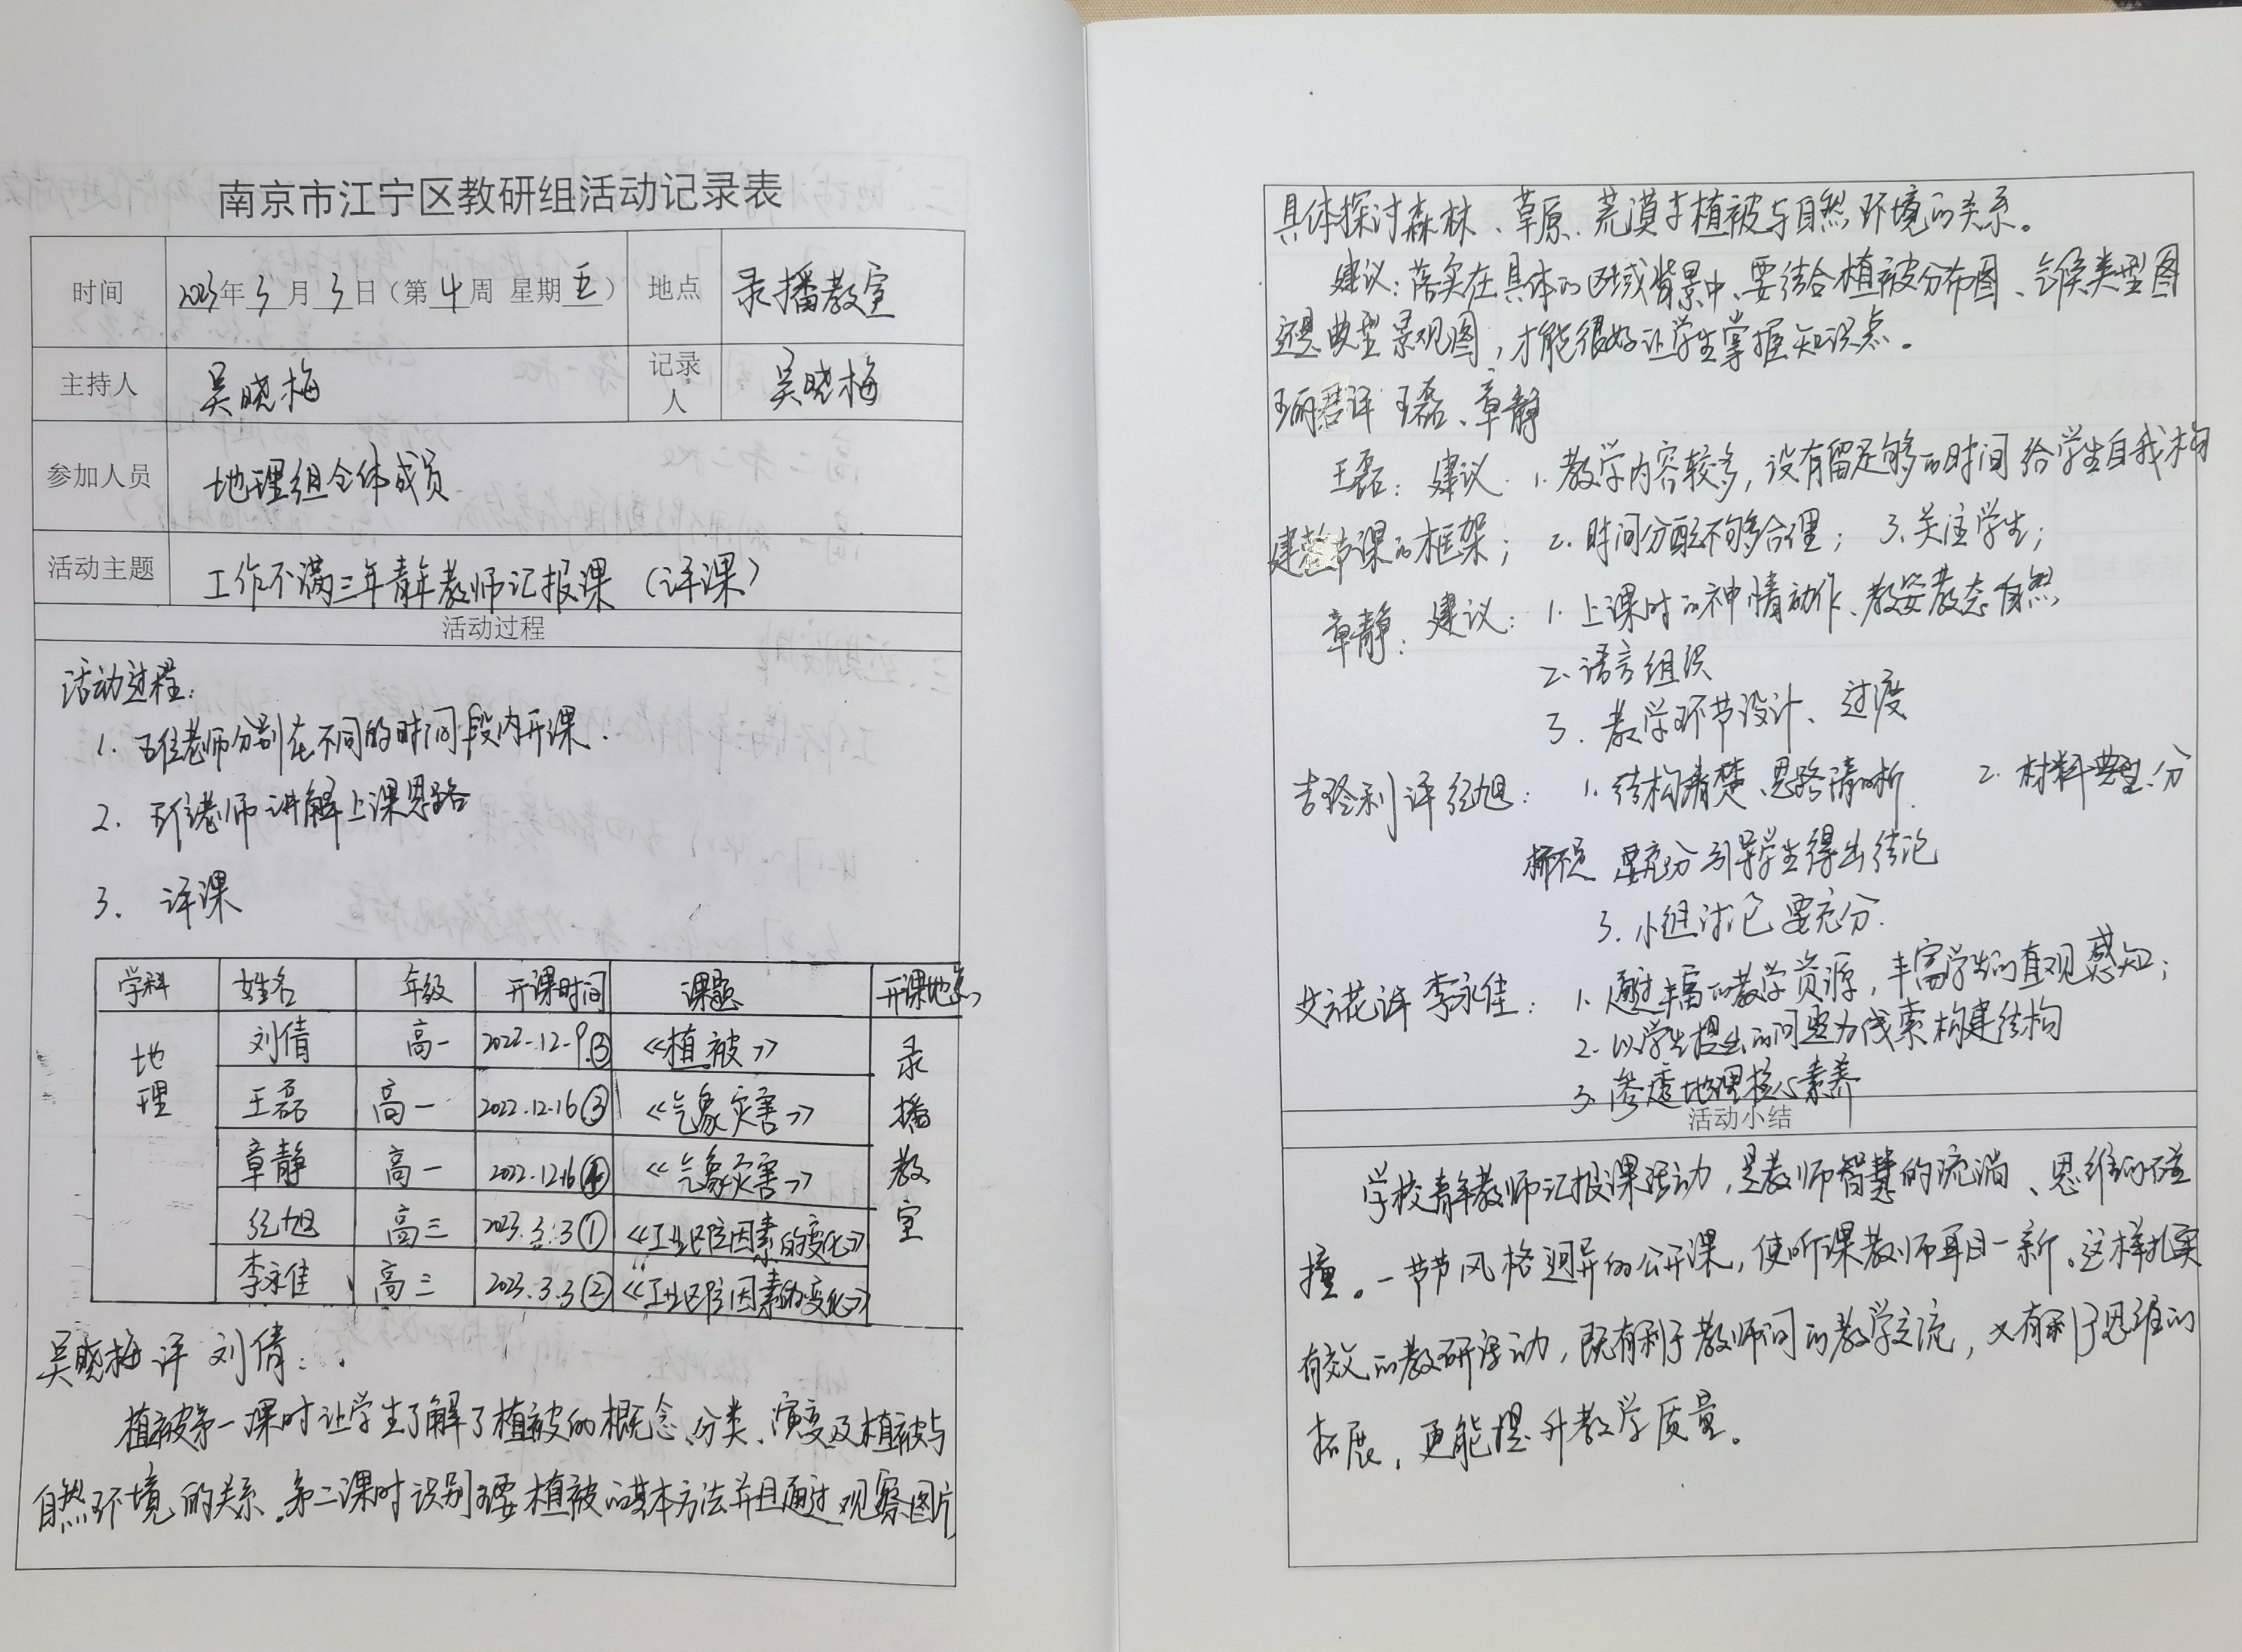 南京市江宁区教研组活动记录表
时间 2023年3月3日（第4周 星期五） 地点 录播教室
主持人 吴晓梅 记录人 吴晓梅
参加人员 地理组全体成员
活动主题 工作不满三年青年教师汇报课（评课）
活动过程
活动过程：
1. 五位老师分别在不同的时间段内开课.
2. 五位老师讲解上课思路
3. 评课
学科 姓名 年级 开课时间 课题 开课地点
地理 刘倩 高一 2022.12.9③ 《植被》 录播教室
王磊 高一 2022.12.16③ 《气象灾害》
章静 高一 2022.12.16④ 《气象灾害》
旭 高三 2023.3.3① 《工业区位因素的变化》
李永佳 高三 2023.3.3② 《工业区位因素的变化》
吴晓梅评刘倩：
植被第一课时让学生了解了植被的概念、分类、演变及植被与
自然环境的关系。第二课时识别主要植被的基本方法并且通过观察图片
具体探讨森林、草原、荒漠等植被与自然环境的关系。
建议：落实在具体的区域背景中、要结合植被分布图、气候类型图
典型景观图，才能很好让学生掌握知识点。
王丽君评 王磊、章静
王磊：建议 1. 教学内容较多，没有留足够的时间给学生自我构
建整节课的框架； 2. 时间分配不够合理； 3. 关注学生；
章静：建议：1. 上课时的神情动作、教姿教态自然
2. 语言组织
3. 教学环节设计、过渡
评 旭：1. 结构清楚、思路清晰. 2. 材料典型、分
析 要充分引导学生得出结论
3. 小组讨论要充分.
花评 李永佳：1. 通过丰富的教学资源，丰富学生的直观感知；
2. 以学生提出的问题为线索构建结构
3. 渗透地理核心素养
活动小结
学校青年教师汇报课活动，是教师智慧的流淌、思维的碰
撞。一节节风格迥异的公开课，使听课教师耳目一新。这样扎实
有效的教研活动，既有利于教师间的教学交流，又有利于思维的
拓展，更能提升教学质量。